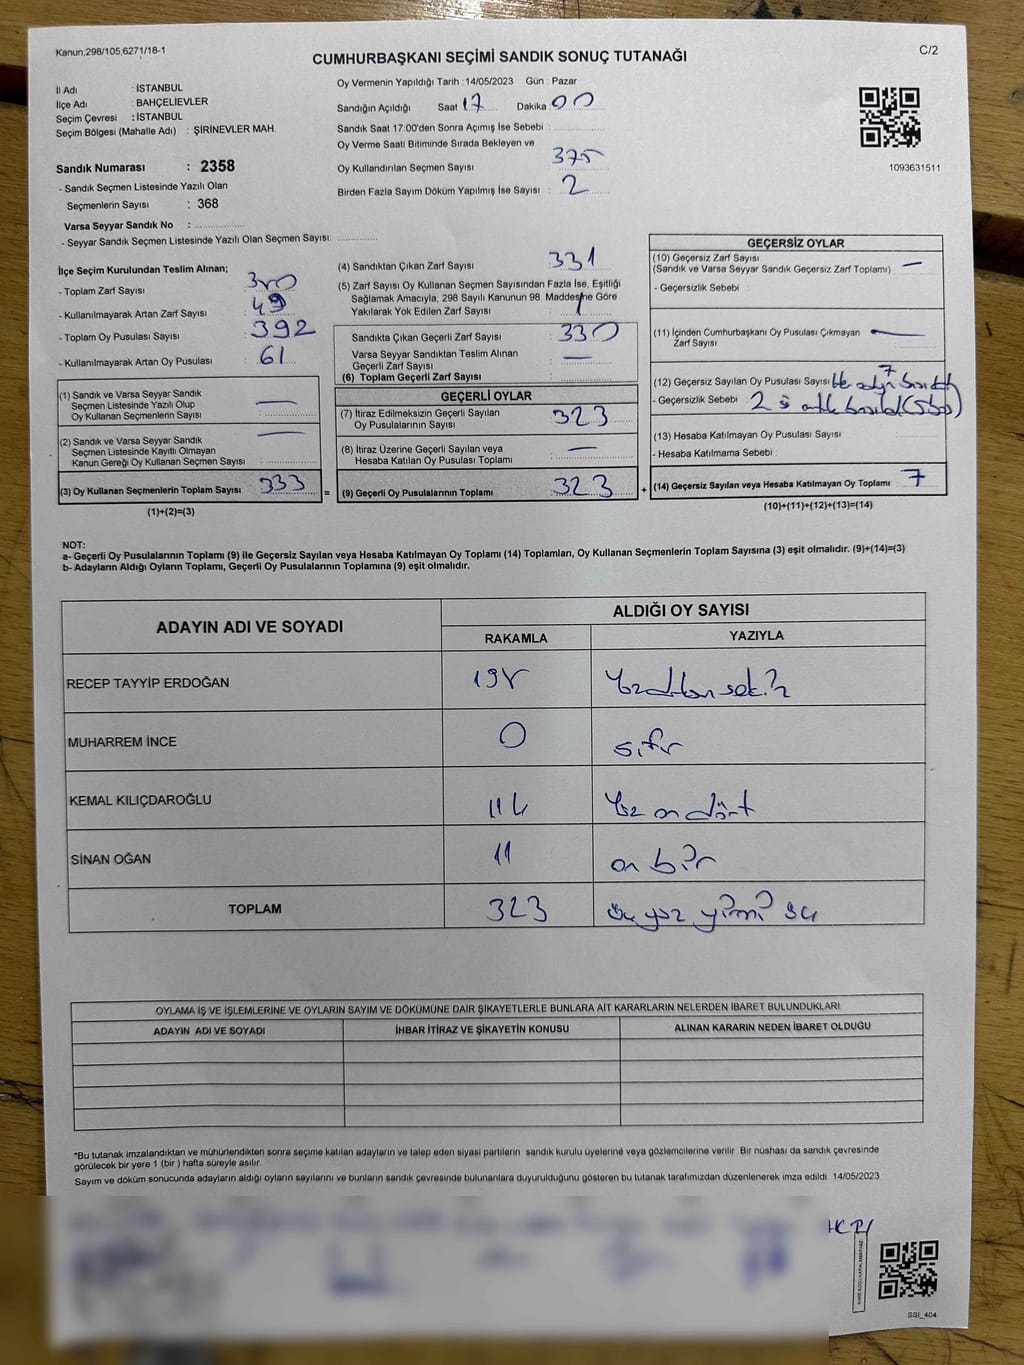 Kanun,298/105,6271/18-1
C/2
CUMHURBAŞKANI SEÇİMİ SANDIK SONUÇ TUTANAĞI
İl Adı : İSTANBUL
İlçe Adı : BAHÇELİEVLER
Seçim Çevresi : İSTANBUL
Seçim Bölgesi (Mahalle Adı) : ŞİRİNEVLER MAH.
Sandık Numarası : 2358
- Sandık Seçmen Listesinde Yazılı Olan
Seçmenlerin Sayısı : 368
Varsa Seyyar Sandık No :
- Seyyar Sandık Seçmen Listesinde Yazılı Olan Seçmen Sayısı:
Oy Vermenin Yapıldığı Tarih :14/05/2023 Gün : Pazar
Sandığın Açıldığı Saat 17 Dakika 00
Sandık Saat 17:00'den Sonra Açımış İse Sebebi :
Oy Verme Saati Bitiminde Sırada Bekleyen ve
Oy Kullandırılan Seçmen Sayısı : 375
Birden Fazla Sayım Döküm Yapılmış İse Sayısı : 2
1093631511
İlçe Seçim Kurulundan Teslim Alınan;
- Toplam Zarf Sayısı :
- Kullanılmayarak Artan Zarf Sayısı : 49
- Toplam Oy Pusulası Sayısı : 392
- Kullanılmayarak Artan Oy Pusulası : 61
(1) Sandık ve Varsa Seyyar Sandık
Seçmen Listesinde Yazılı Olup
Oy Kullanan Seçmenlerin Sayısı : —
(2) Sandık ve Varsa Seyyar Sandık
Seçmen Listesinde Kayıtlı Olmayan
Kanun Gereği Oy Kullanan Seçmen Sayısı : —
(3) Oy Kullanan Seçmenlerin Toplam Sayısı : 333
(1)+(2)=(3)
(4) Sandıktan Çıkan Zarf Sayısı : 331
(5) Zarf Sayısı Oy Kullanan Seçmen Sayısından Fazla İse, Eşitliği
Sağlamak Amacıyla, 298 Sayılı Kanunun 98. Maddesine Göre
Yakılarak Yok Edilen Zarf Sayısı : 1
Sandıkta Çıkan Geçerli Zarf Sayısı : 330
Varsa Seyyar Sandıktan Teslim Alınan
Geçerli Zarf Sayısı : —
(6) Toplam Geçerli Zarf Sayısı :
GEÇERLİ OYLAR
(7) İtiraz Edilmeksizin Geçerli Sayılan
Oy Pusulalarının Sayısı : 323
(8) İtiraz Üzerine Geçerli Sayılan veya
Hesaba Katılan Oy Pusulası Toplamı : —
= (9) Geçerli Oy Pusulalarının Toplamı : 323 +
GEÇERSİZ OYLAR
(10) Geçersiz Zarf Sayısı
(Sandık ve Varsa Seyyar Sandık Geçersiz Zarf Toplamı) : —
- Geçersizlik Sebebi :
(11) İçinden Cumhurbaşkanı Oy Pusulası Çıkmayan
Zarf Sayısı : —
(12) Geçersiz Sayılan Oy Pusulası Sayısı : 7
- Geçersizlik Sebebi :
(13) Hesaba Katılmayan Oy Pusulası Sayısı :
- Hesaba Katılmama Sebebi :
(14) Geçersiz Sayılan veya Hesaba Katılmayan Oy Toplamı : 7
(10)+(11)+(12)+(13)=(14)
NOT:
a- Geçerli Oy Pusulalarının Toplamı (9) ile Geçersiz Sayılan veya Hesaba Katılmayan Oy Toplamı (14) Toplamları, Oy Kullanan Seçmenlerin Toplam Sayısına (3) eşit olmalıdır. (9)+(14)=(3)
b- Adayların Aldığı Oyların Toplamı, Geçerli Oy Pusulalarının Toplamına (9) eşit olmalıdır.
ADAYIN ADI VE SOYADI
ALDIĞI OY SAYISI
RAKAMLA YAZIYLA
RECEP TAYYİP ERDOĞAN
MUHARREM İNCE 0 sıfır
KEMAL KILIÇDAROĞLU 114 Yüz on dört
SİNAN OĞAN 11 on bir
TOPLAM 323 üç yüz yirmi üç
OYLAMA İŞ VE İŞLEMLERİNE VE OYLARIN SAYIM VE DÖKÜMÜNE DAİR ŞİKAYETLERLE BUNLARA AİT KARARLARIN NELERDEN İBARET BULUNDUKLARI
ADAYIN ADI VE SOYADI İHBAR İTİRAZ VE ŞİKAYETİN KONUSU ALINAN KARARIN NEDEN İBARET OLDUĞU
*Bu tutanak imzalandıktan ve mühürlendikten sonra seçime katılan adayların ve talep eden siyasi partilerin sandık kurulu üyelerine veya gözlemcilerine verilir Bir nüshası da sandık çevresinde
görülecek bir yere 1 (bir ) hafta süreyle asılır.
Sayım ve döküm sonucunda adayların aldığı oyların sayılarını ve bunların sandık çevresinde bulunanlara duyurulduğunu gösteren bu tutanak tarafımızdan düzenlenerek imza edildi 14/05/2023
KARE KODU KARALAMAYINIZ!
SSI_404